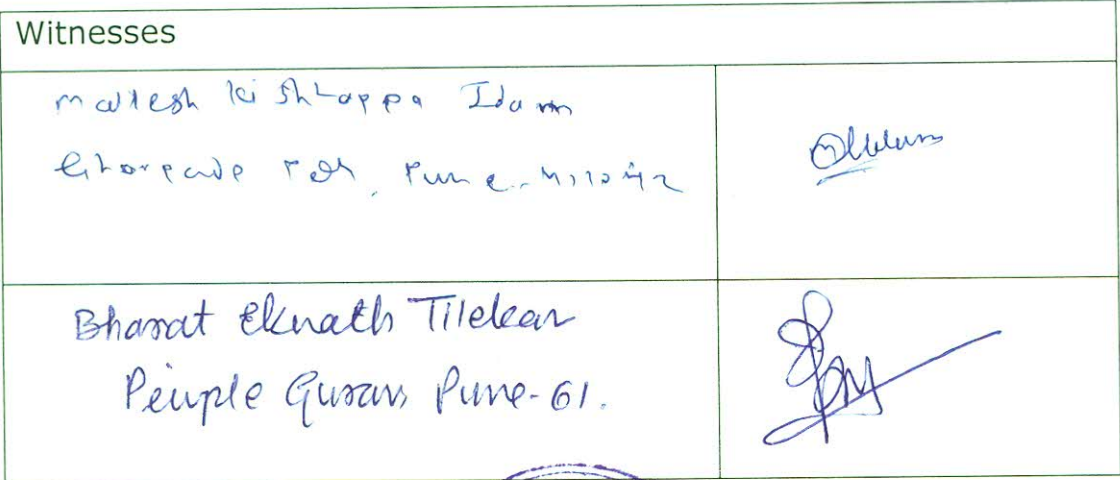 Witnesses
Mallesh Kishtappa Idam
Ghorpade Peth, Pune-
Bharat Eknath Tilekar
Peinple Gurav, Pune-61.